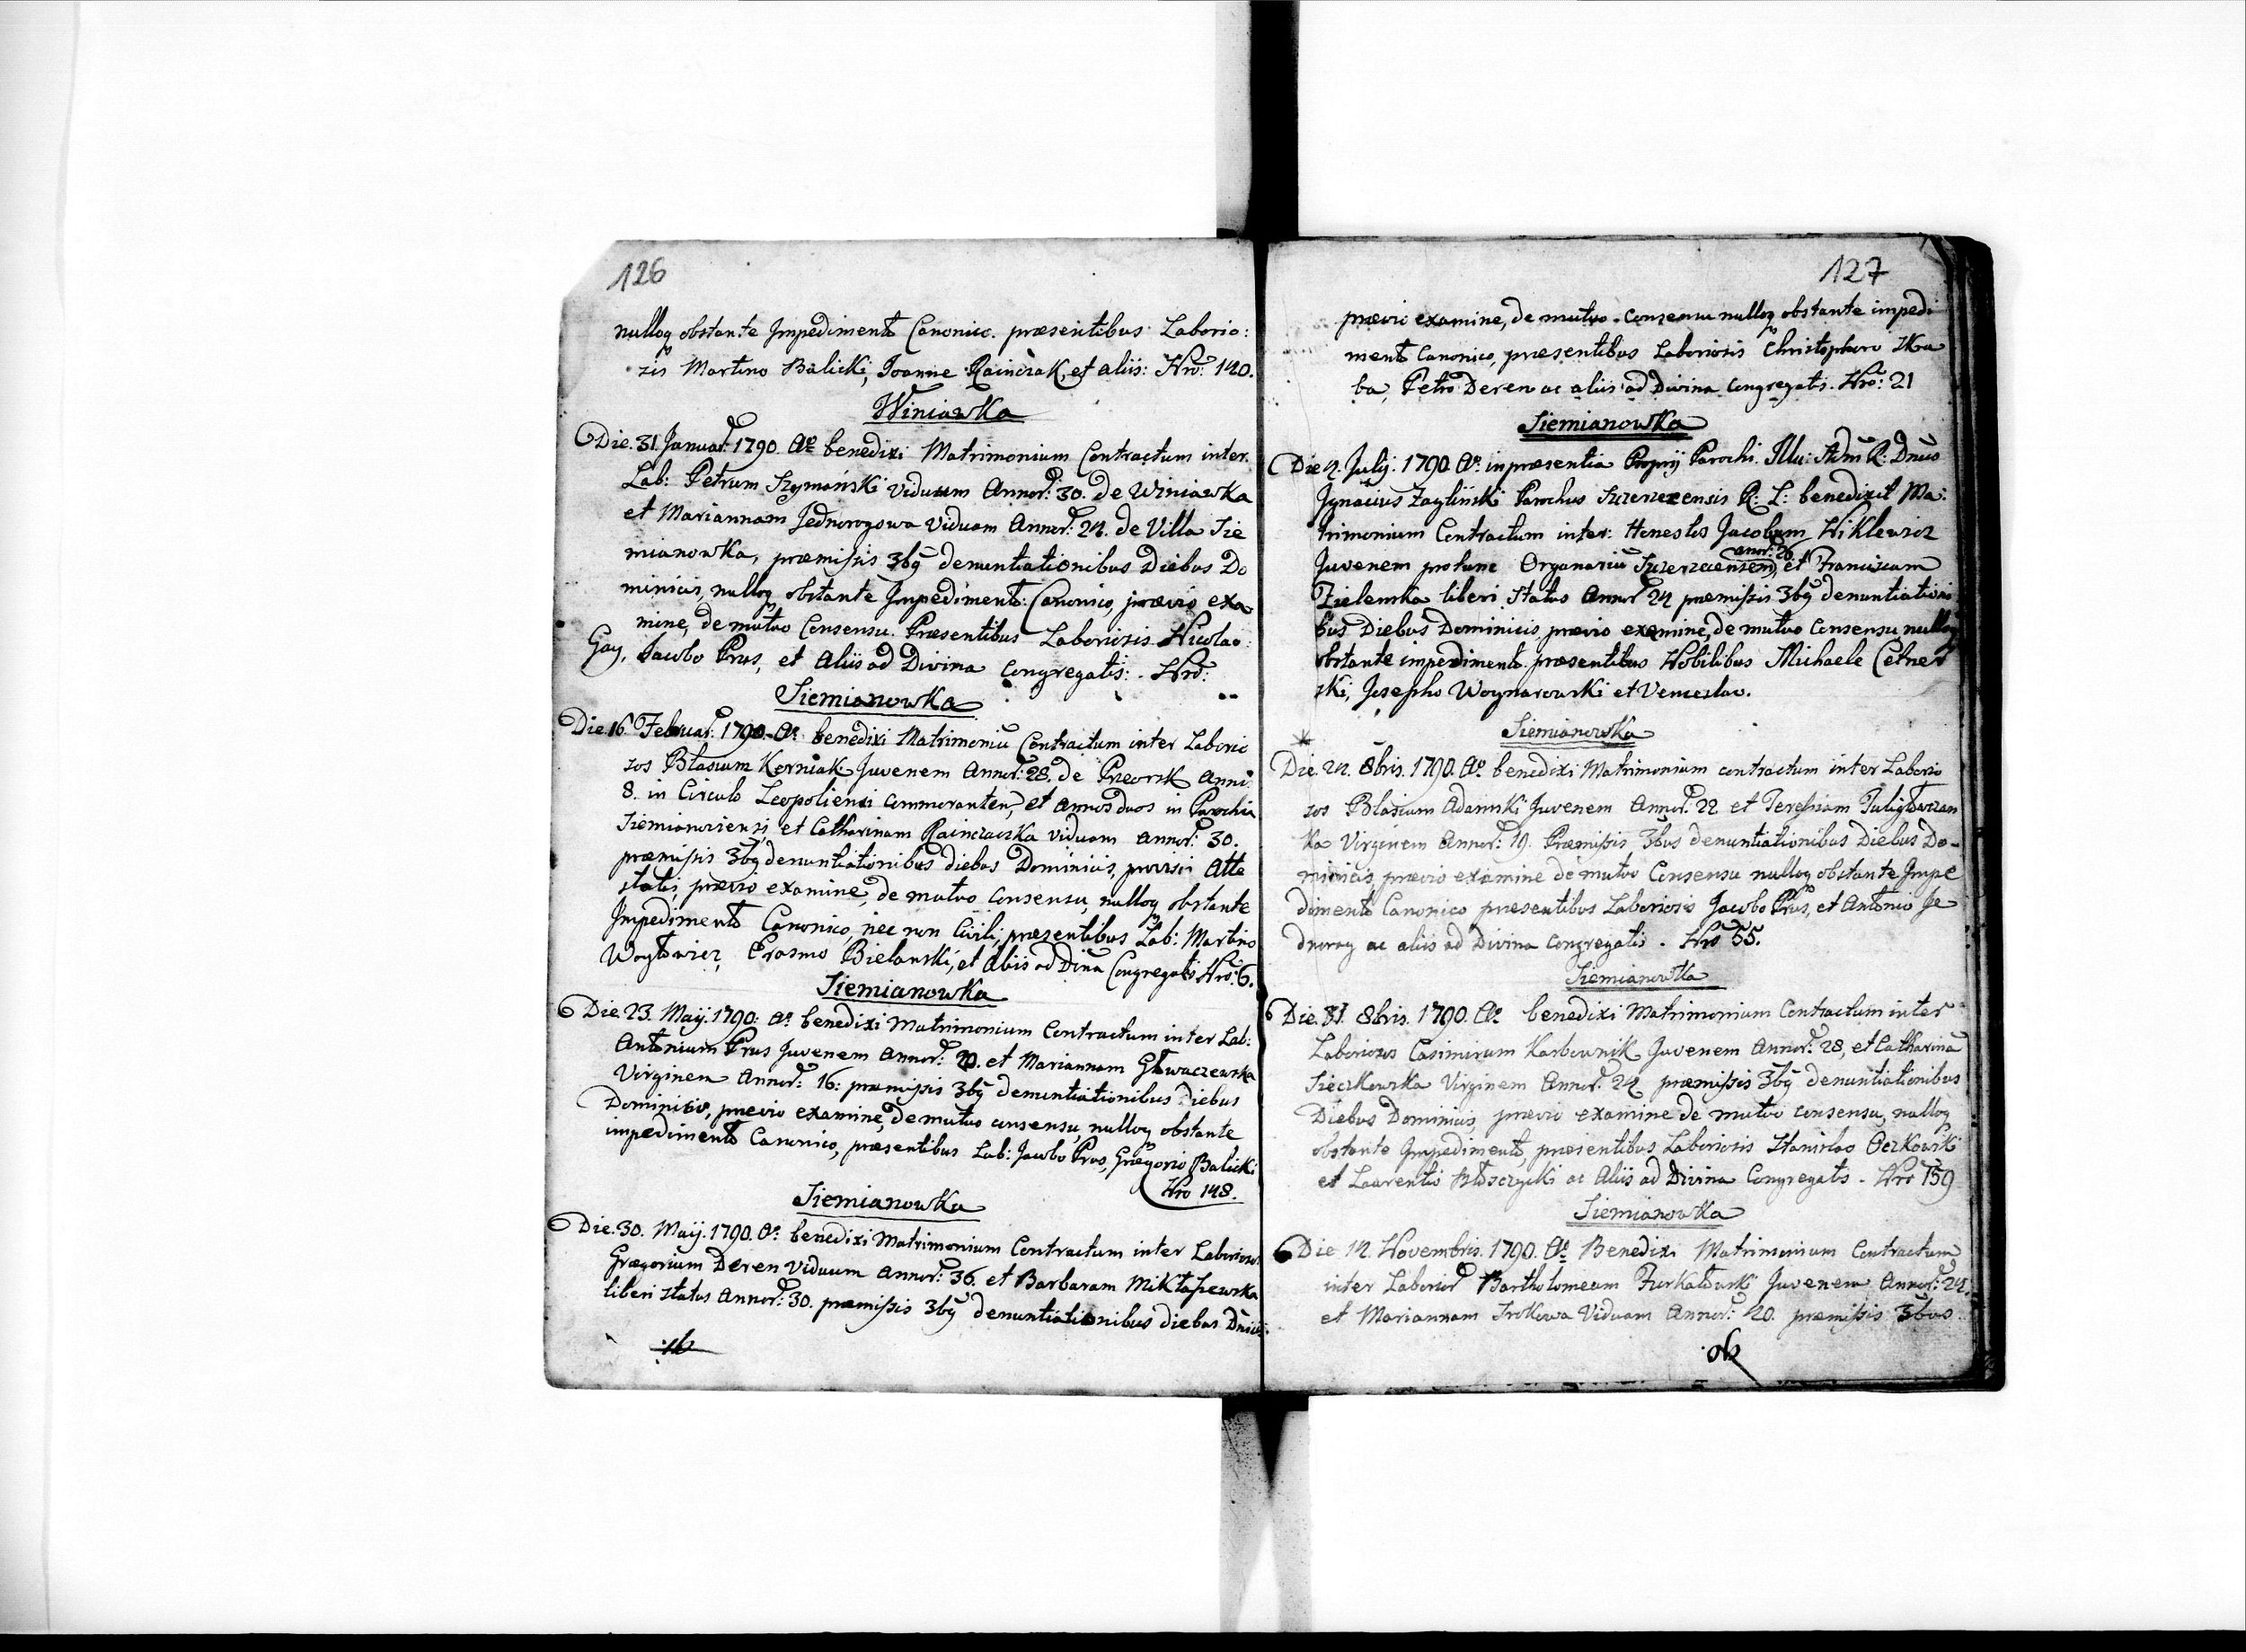 126
nulloq obstante Impedimento Canonico. præsentibus Laborio:
sis Martino Balicki, Joanne Rainczak, et aliis: Nro: 140.
Winiawka
Die. 31. Januar: 1790. Ao benedixi Matrimonium Contractum inter.
Lab: Petrum Szymański viduum Annor: 30. de Winiawka
et Mariannam Jednorogowa viduam Annor: 24. de Villa Sie
mianowka, præmissis 3bq denuntiationibus Diebus Do
minicis, nulloq obstante Impedimento: Canonico, prævio exa
mine, de mutuo Consensu. Præsentibus Laboriosis. Nicolao
Gay, Jacobo Prus, et Aliis ad Divina Congregatis: Nro:
Siemianowka
Die. 16 Februar: 1790. Ao benedixi Matrimoniū Contractum inter Laborio
sos Blasium Korniak Juvenem Annor: 28. de Preorsk anni
8. in Circulo Leopoliensi commorantem, et annos duos in Parochia
Siemianoviensi, et Catharinam Rainczacska viduam annor: 30.
præmissis 3bq denuntiationibus diebus Dominicis, provisi Atte
statis, prævio examine, de mutuo consensu, nulloq obstante
Impedimento Canonico, nec non Civili, præsentibus Lab: Martino
Woytowicz, Erasmo Bielanski, et Aliis ad Dina Congregatis Nro: 6.
Siemianowka
Die. 23. Maij. 1790: Ao. benedixi Matrimonium Contractum inter Lab:
Antonium Prus Juvenem Annor: 20. et Mariannam Głwaczewska
Virginem Annor: 16: præmissis 3bq denuntiationibus Diebus
Dominicis, prævio examine, de mutuo consensu, nulloq obstante
impedimento Canonico, præsentibus Lab: Jacobo Prus, Gregorio Balicki
Nro 148.
Siemianowka
Die. 30. Maij. 1790. Ao: benedixi Matrimonium Contractum inter Laborios.
Grægorium Deren viduum annor: 36. et Barbaram Mikłaszewska
liberi status Annor: 30. præmissis 3bq denuntiationibus diebus Dnicis
127
prævio examine, de mutuo consensu nulloq obstante impedi
mento Canonico, præsentibus Laboriosis Christophoro Ska
ba, Petro Deren ac aliis ad Divina Congregatis. Nro: 21
Siemianowka
Die 4. Julij. 1790. Ao. in præsentia Proprij Parochi. Illu: Adm R: Dnus
Ignacius Zagliński Parochus Szczerzecensis R: L: benedixit Ma:
trimonium Contractum inter: Honestos Jacobum Wiklewicz
anor: 26.
Juvenem protunc Organariū Szczerzecensem, et Franciscam
Zielenska liberi Status Annor 24 præmissis 3bq denuntiationi
bus Diebus Dominicis, prævio examine, de mutuo Consensu nulloq
obstante impedimento. præsentibus Nobilibus Michaele Cetner
ski, Josepho Woynarowski et Venceslao.
Siemianowka
Die. 24. 8bris. 1790. Ao. benedixi Matrimonium contractum inter Laborio
sos Blasium Adamski Juvenem Annor: 22 et Teressiam Puligłowczan
ka Virginem Annor: 19. Præmissis 3bus denuntiationibus Diebus Do-
minicis, prævio examine de mutuo Consensu nulloq obstante Impe
dimento Canonico præsentibus Laboriosis Jacobo Prus, et Antonio Je
dnorog ac aliis ad Divina Congregatis. Nro 55.
Siemianowka
Die. 31. 8bris. 1790. Ao. benedixi Matrimonium Contractum inter
Laboriosos Casimirum Karbownik Juvenem Annor: 28, et Catharinā
Sieczkowska Virginem Annor: 24 præmissis 3bq denuntiationibus
Diebus Dominicis, prævio examine de mutuo consensu, nulloq
obstante Impedimento, præsentibus Laboriosis Stanislao Oczkowski
et Laurentio Błoszczycki ac Aliis ad Divina Congregatis. Nro 159
Siemianowka
Die 14. Novembris. 1790. Ao. Benedixi Matrimonium Contractum
inter Laborios Bartholomeum Furkałowski Juvenem Annor: 24.
et Mariannam Srokowa Viduam Annor: 20. præmissis 3bus